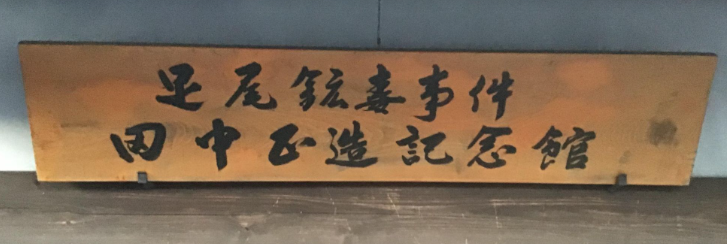 足尾鉱毒事件
田中正造記念館